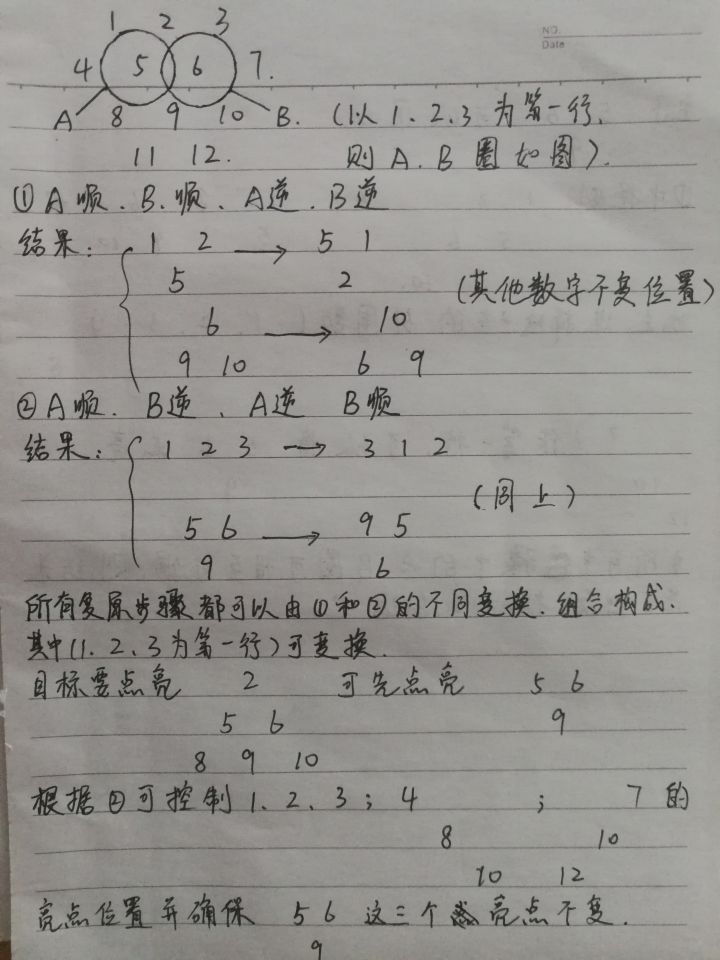 1 2 3
NO.
Date
4 5 6 7.
A 8 9 10 B. (以1、2、3为第一行、
11 12. 则A、B圈如图).
①A顺、B.顺、A逆、B逆
结果: 1 2 → 5 1
5 2 (其他数字不变位置)
6 → 10
9 10 6 9
②A顺、B逆、A逆 B顺
结果: 1 2 3 → 3 1 2
(同上)
5 6 → 9 5
9 6
所有复原步骤都可以由①和②的不同变换.组合构成.
其中(1、2、3为第一行)可变换.
目标要点亮 2 可先点亮 5 6
5 6 9
8 9 10
根据②可控制1、2、3; 4 ; 7 的
8 10
10 12
亮点位置并确保 5 6 这三个亮点不变.
9